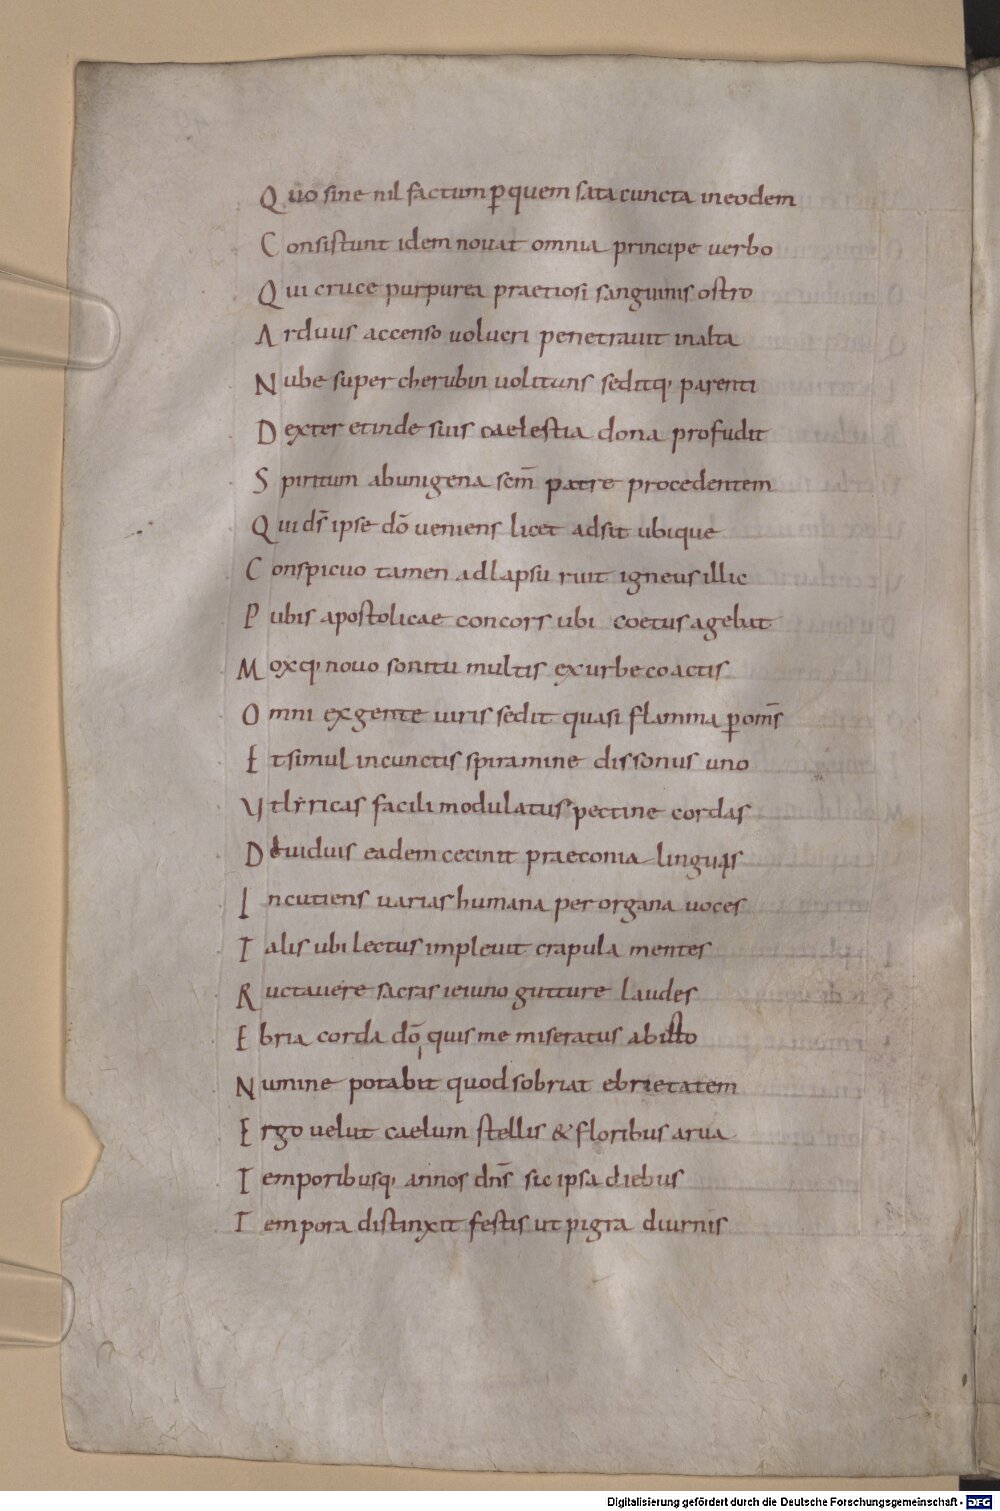 Quo sine nil factum ꝑ quem sata cuncta in eodem
Consistunt idem nouat omnia principe uerbo
Qui cruce purpurea praetiosi sanguinis ostro
Arduus accenso uolucri penetrauit in alta
Nube super cherubin uolitans seditq; parenti
Dexter et inde suis caelestia dona profudit
Spiritum ab unigena sem̄ patre procedentem
Qui ds̄ ipse dō ueniens licet adsit ubique
Conspicuo tamen adlapsu ruit igneus illic
Pubis apostolicae concors ubi coetus agebat
Moxq; nouo sonitu multis ex urbe coactis
Omni ex gente uiris sedit quasi flamma ꝑ om̄s
Et simul in cunctis spiramine dissonus uno
Vt lyricas facili modulatus pectine cordas
Diuiduis eadem cecinit praeconia linguis
Incutiens uarias humana per organa uoces
Talis ubi lectus impleuit crapula mentes
Ructauere sacras ieiuno gutture laudes
Ebria corda dō quis me miseratus ab isto
Numine potabit quod sobriat ebrietatem
Ergo uelut caelum stellis & floribus arua
Temporibusq; annos dn̄s sic ipsa diebus
Tempora distinxit festis ut pigra diurnis
Digitalisierung gefördert durch die Deutsche Forschungsgemeinschaft - DFG